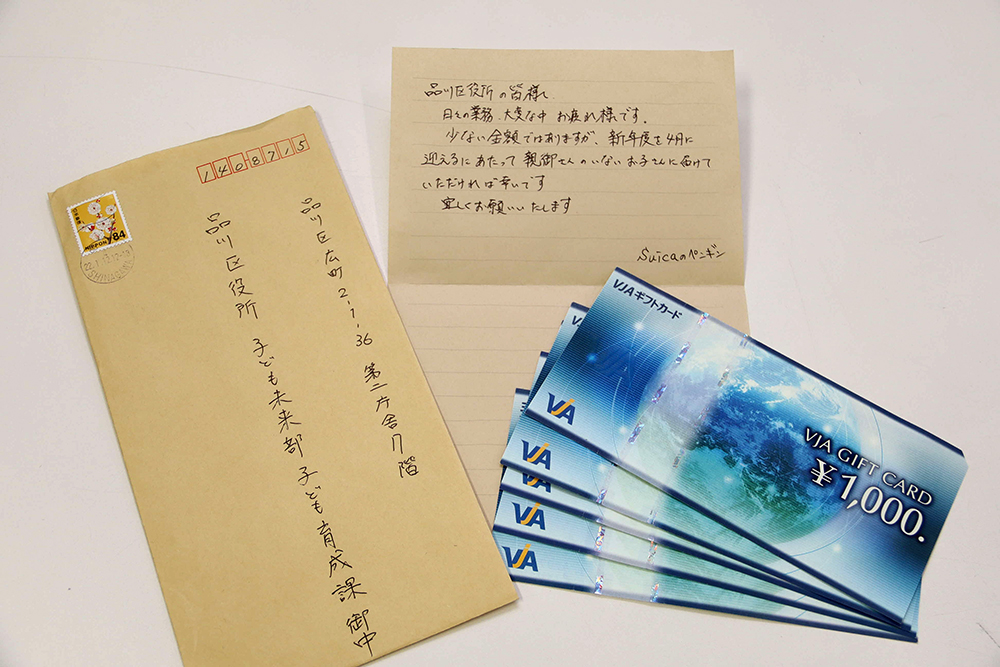 1408715
品川区広町2-1-36 第二庁舎7階
品川区役所 子ども未来部 子ども育成課 御中
NIPPON
¥84
SHINAGAWA
品川区役所の皆様へ
日々の業務、大変な中 お疲れ様です。
少ない金額ではありますが、新年度を4月に
迎えるにあたって 親御さんのいないお子さんに届けて
いただければ幸いです
宜しくお願いいたします
Suicaのペンギン
VJAギフトカード
VJA
VJA GIFT CARD
¥1,000.
VJA
VJA
VJA
VJA